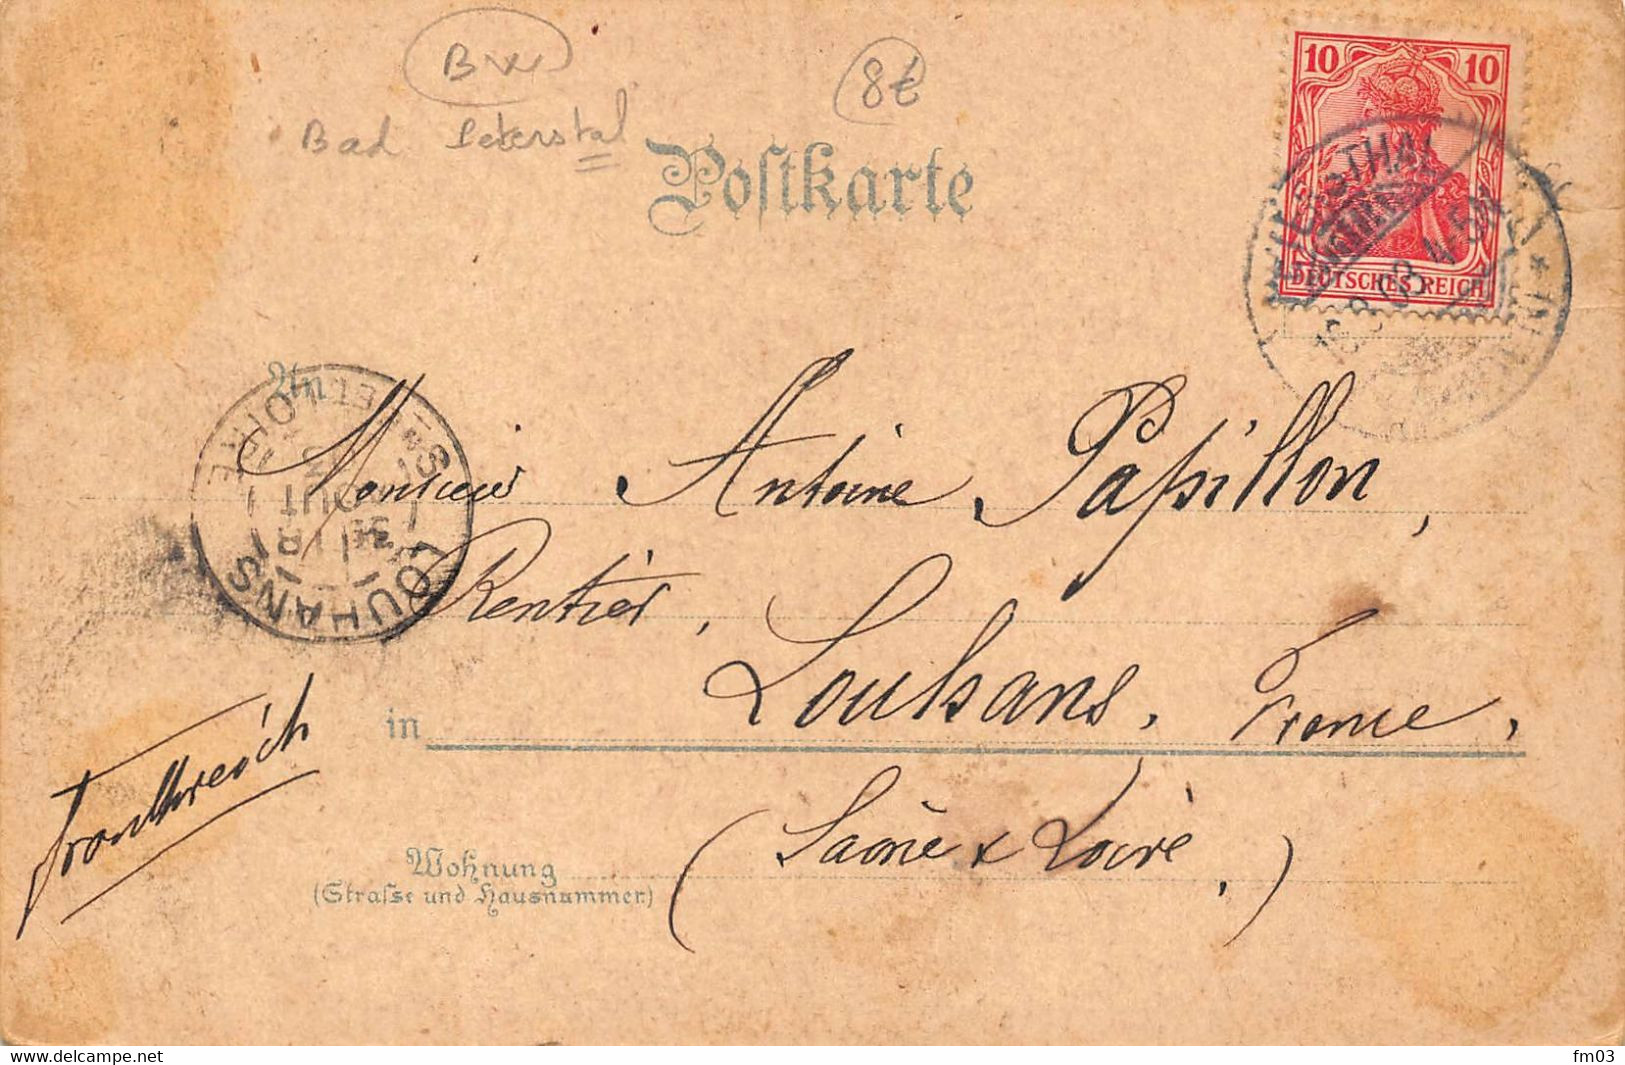 BW
8€
Bad Peterstal
Postkarte
10 10
DEUTSCHES REICH
An
Monsieur Antoine Papillon,
Rentier,
LOUHANS
in Louhans. France.
Frankreich
(Saône & Loire,)
Wohnung
(Straſse und Hausnummer.)
www.delcampe.net
fm03